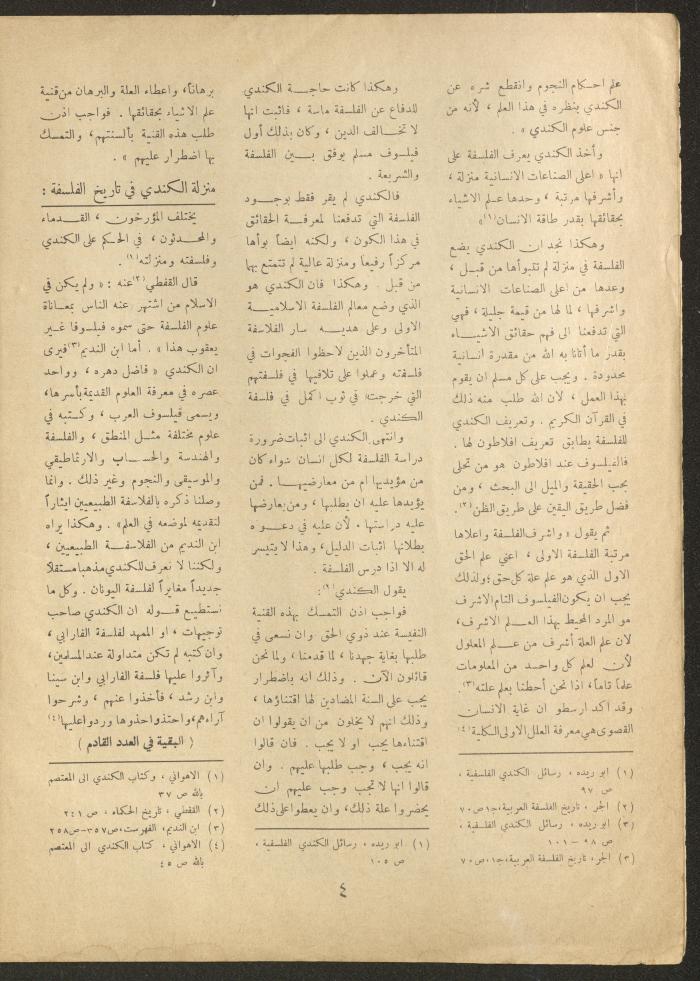 علم احكام النجوم وانقطع شره عن
الكندي بنظره في هذا العلم ، لأنه من
جنس علوم الكندي » .
وأخذ الكندي يعرف الفلسفة على
انها « اعلى الصناعات الانسانية منزلة ،
وأشرفها مرتبة ، وحدها علم الاشياء
بحقائقها بقدر طاقة الانسان(١)»
وهكذا نجد ان الكندي يضع
الفلسفة في منزلة لم تتبوأها من قبل ،
وعدها من اعلى الصناعات الانسانية
واشرفها ، لما لها من قيمة جليلة ، فهي
التي تدفعنا الى فهم حقائق الاشياء
بقدر ما أتانا به الله من مقدرة انسانية
محدودة . ويجب على كل مسلم ان يقوم
بهذا العمل ، لان الله طلب منه ذلك
في القرآن الكريم . وتعريف الكندي
للفلسفة يطابق تعريف افلاطون لها .
فالفيلسوف عند افلاطون هو من تحلى
بحب الحقيقة والميل الى البحث ، ومن
فضل طريق اليقين على طريق الظن(٢).
ثم يقول « واشرف الفلسفة واعلاها
مرتبة الفلسفة الاولى ، اعني علم الحق
الاول الذي هو علم علة كل حق ؛ ولذلك
يجب ان يكون الفيلسوف التام الاشرف
هو المرء المحيط بهذا العلم الاشرف ،
لان علم العلة أشرف من علم المعلول
لأن لعلم كل واحد من المعلومات
علماً تاماً ، اذا نحن أحطنا بعلم علته(٣).
وقد اكد ارسطو ان غاية الانسان
القصوى هي معرفة العلل الاولى الكلية(٤)
(١) ابو ريده ، رسائل الكندي الفلسفية ،
ص ٩٧
(٢) الجر ، تاريخ الفلسفة العربية،ج١ص٧٠
(٣) ابو ريده ، رسائل الكندي الفلسفية ،
ص ٩٨ – ١٠١
(٣) الجر ، تاريخ الفلسفة العربية،ج١،ص٧٠
وهكذا كانت حاجة الكندي
للدفاع عن الفلسفة ماسة ، فاثبت انها
لا تخالف الدين ، وكان بذلك أول
فيلسوف مسلم يوفق بين الفلسفة
والشريعة .
فالكندي لم يقر فقط بوجود
الفلسفة التي تدفعنا لمعرفة الحقائق
في هذا الكون ، ولكنه ايضاً بوأها
مركزاً رفيعا ومنزلة عالية لم تتمتع بها
من قبل . وهكذا فان الكندي هو
الذي وضع معالم الفلسفة الاسلامية
الاولى وعلى هديه سار الفلاسفة
المتأخرون الذين لاحظوا الفجوات في
فلسفته وعملوا على تلافيها في فلسفتهم
التي خرجت في ثوب اكمل في فلسفة
الكندي .
وانتهى الكندي الى اثبات ضرورة
دراسة الفلسفة لكل انسان سواء كان
من مؤيديها ام من معارضيها . فمن
يؤيدها عليه ان يطلبها ، ومن يعارضها
عليه دراستها . لأن عليه في دعوه
بطلانها اثبات الدليل، وهذا لا يتيسر
له الا اذا درس الفلسفة .
يقول الكندي(١):
فواجب اذن التمسك بهذه القنية
النفيسة عند ذوي الحق وان نسعى في
طلبها بغاية جهدنا ، لما قدمنا ، ولما نحن
قائلون الآن . وذلك انه باضطرار
يجب على السنة المضادين لها اقتناؤها ،
وذلك انهم لا يخلون من ان يقولوا ان
اقتناءها يجب او لا يجب . فان قالوا
انه يجب ، وجب طلبها عليهم . وان
قالوا انها لا تجب وجب عليهم ان
يحضروا علة ذلك، وان يعطوا على ذلك
(١) ابو ريده ، رسائل الكندي الفلسفية ،
ص ١٠٥
برهاناً، واعطاء العلة والبرهان من قنية
علم الاشياء بحقائقها . فواجب اذن
طلب هذه القنية بألسنتهم، والتمسك
بها اضطرار عليهم » .
منزلة الكندي في تاريخ الفلسفة :
يختلف المؤرخون ، القدماء
والمحدثون ، في الحكم على الكندي
وفلسفته ومنزلته(١).
قال القفطي(٢)عنه : « ولم يكن في
الاسلام من اشتهر عنه الناس بمعاناة
علوم الفلسفة حتى سموه فيلسوفا غير
يعقوب هذا » . أما ابن النديم(٣)فيرى
ان الكندي « فاضل دهره ، وواحد
عصره في معرفة العلوم القديمة بأسرها،
ويسمى فيلسوف العرب ، وكتبه في
علوم مختلفة مثل المنطق ، والفلسفة
والهندسة والحساب والارتماطيقي
والموسيقى والنجوم وغير ذلك . وانما
وصلنا ذكره بالفلاسفة الطبيعيين ايثاراً
لتقديمه لموضعه في العلم» . وهكذا يراه
ابن النديم من الفلاسفة الطبيعيين ،
ولكننا لا نعرف للكندي مذهبا مستقلا
جديداً مغايراً لفلسفة اليونان . وكل ما
نستطيع قوله ان الكندي صاحب
توجيهات ، او الممهد لفلسفة الفارابي ،
وان كتبه لم تكن متداولة عند المسلمين،
وآثروا عليها فلسفة الفارابي وابن سينا
وابن رشد ، فأخذوا عنهم ، وشرحوا
آراءهم،واحتذوا حذوها وردوا عليها(٤)
( البقية في العدد القادم )
(١) الاهواني ، وكتاب الكندي الى المعتصم
بالله ص ٣٧
(٢) القفطي ، تاريخ الحكماء ، ص ٢٤١
(٣) ابن النديم، الفهرست،ص٣٥٧–٢٥٨
(٤) الاهواني ، كتاب الكندي الى المعتصم
بالله ص ٤٥
٤